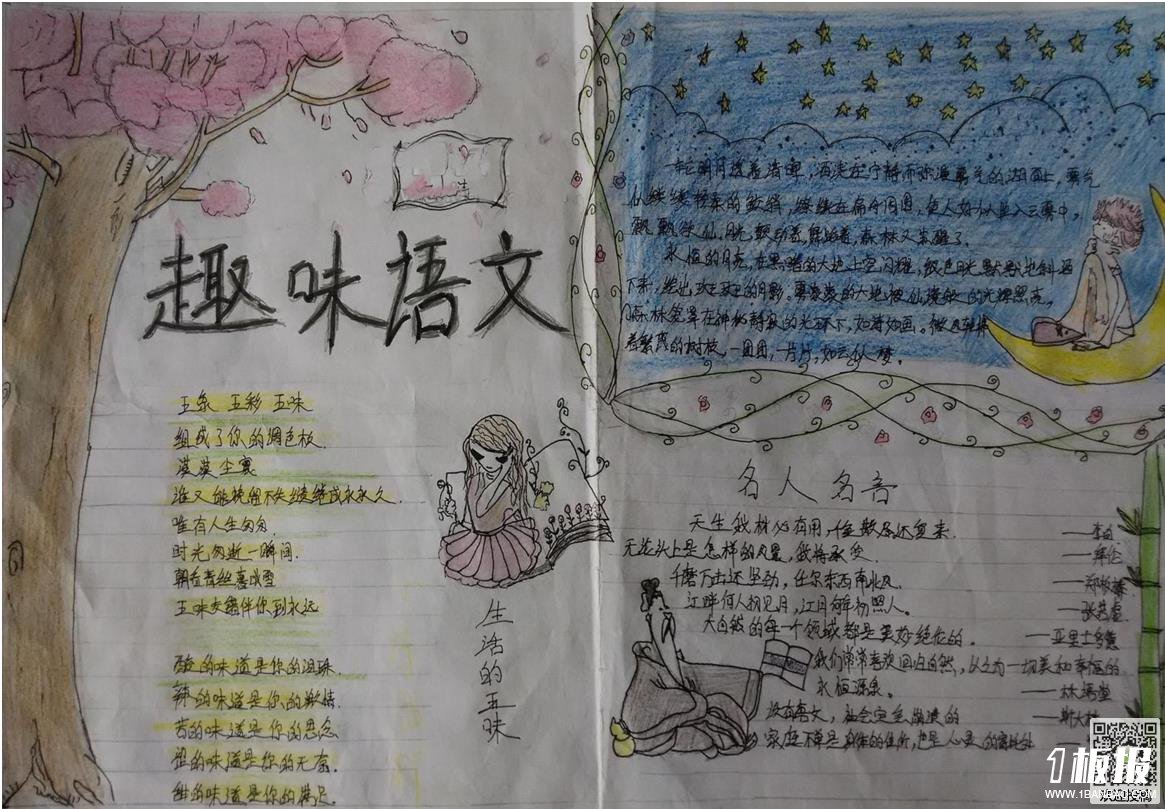 趣味语文
五条 五彩 五味
组成了你的调色板.
漠漠尘寰
谁又能挽留不失继续成永永久.
唯有人生匆匆
时光匆逝一瞬间.
朝看青丝暮成雪
五味交织伴你到永远
酸的味道是你的泪珠.
辣的味道是你的激情.
苦的味道是你的思念
涩的味道是你的无奈.
的味道是你的满足.
生活的五味
一轮明月透着清辉,洒淡在宁静而弥漫雾气的湖面上,雾气
飘飘欲仙,月光颤动着舞蹈着,森林又朱醒了.
永恒的月亮,在黑暗的大地上空闪耀,银色月光默默地斜洒
下来,绘出斑斑的月影。
森林笼罩在神秘静寂的光环下,如诗如画。微风轻拂
着繁茂的树枝,一团团,一片片,如云似梦。
名人名言
天生我材必有用,千金散尽还复来. ——李白
无论头上是怎样的风景,我将承受. ——拜伦
千磨万击还坚劲,任尔东西南北风 ——郑板桥
江畔何人初见月,江月何年初照人。 ——张若虚
大自然的每一个领域都是美妙绝伦的. ——亚里士多德
我们常常喜欢回归自然,以之为一切美和幸福的
永恒源泉。 ——林语堂
没有语文,社会定会崩溃的 ——斯大林
家庭不单是身体的住所,也是心灵的寄托处
1板报
WWW.1BANBAO.COM
欢迎投稿